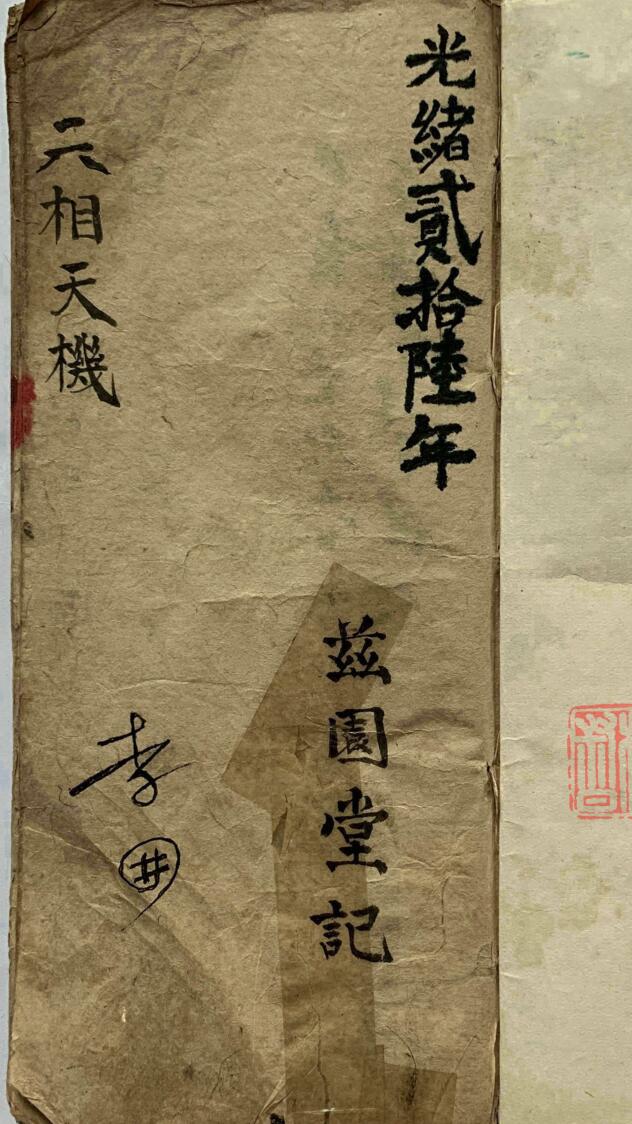 光緒貳拾陸年
茲園堂記
六相天機
李 井